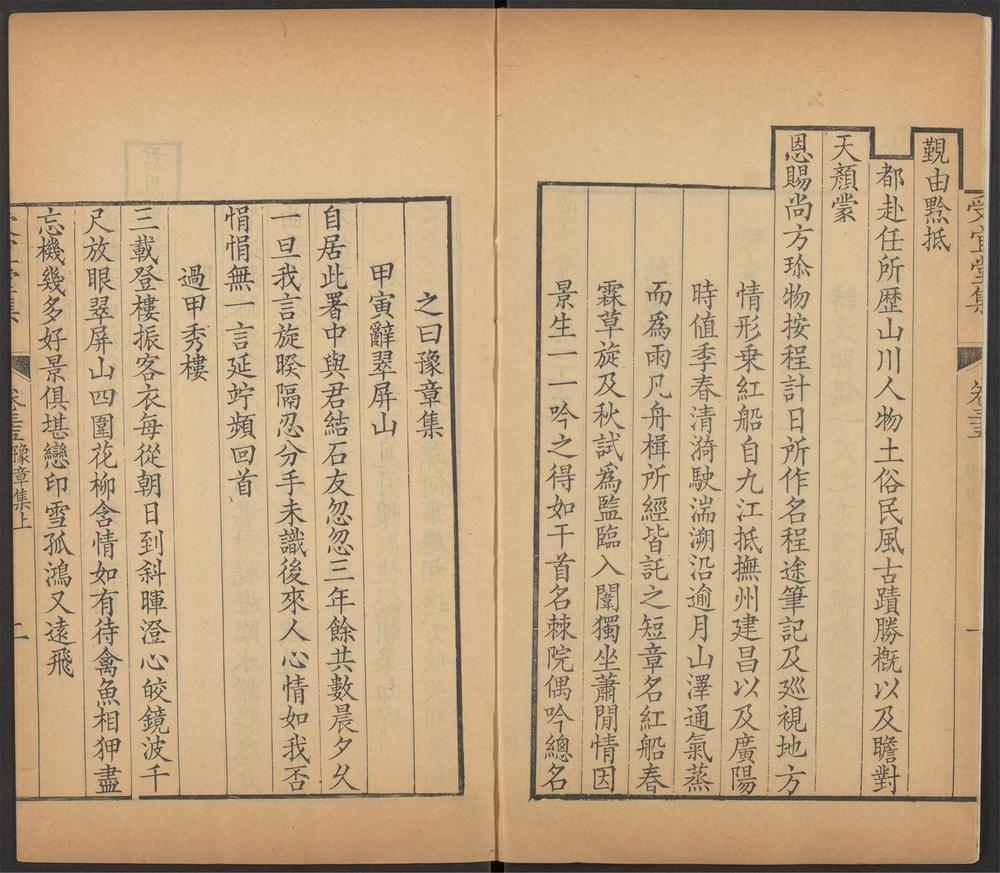 受宜堂集
卷三五
一
覲由黔抵
都赴任所歷山川人物土俗民風古蹟勝槪以及瞻對
天顏蒙
恩賜尚方珎物按程計日所作名程途筆記及廵視地方
情形乗紅船自九江抵撫州建昌以及廣陽
時值季春清漪駛湍溯沿逾月山澤通氣蒸
而爲雨凡舟楫所經皆託之短章名紅船春
霖草旋及秋試爲監臨入闈獨坐蕭閒情因
景生一一吟之得如干首名棘院偶吟總名
之曰豫章集
甲寅辭翠屏山
自居此署中與君結石友忽忽三年餘共數晨夕久
一旦我言旋暌隔忍分手未識後來人心情如我否
悁悁無一言延竚頻回首
過甲秀樓
三載登樓振客衣每從朝日到斜暉澄心皎鏡波千
尺放眼翠屏山四圍花柳含情如有待禽魚相狎盡
忘機幾多好景俱堪戀印雪孤鴻又遠飛
卷三五豫章集上
二